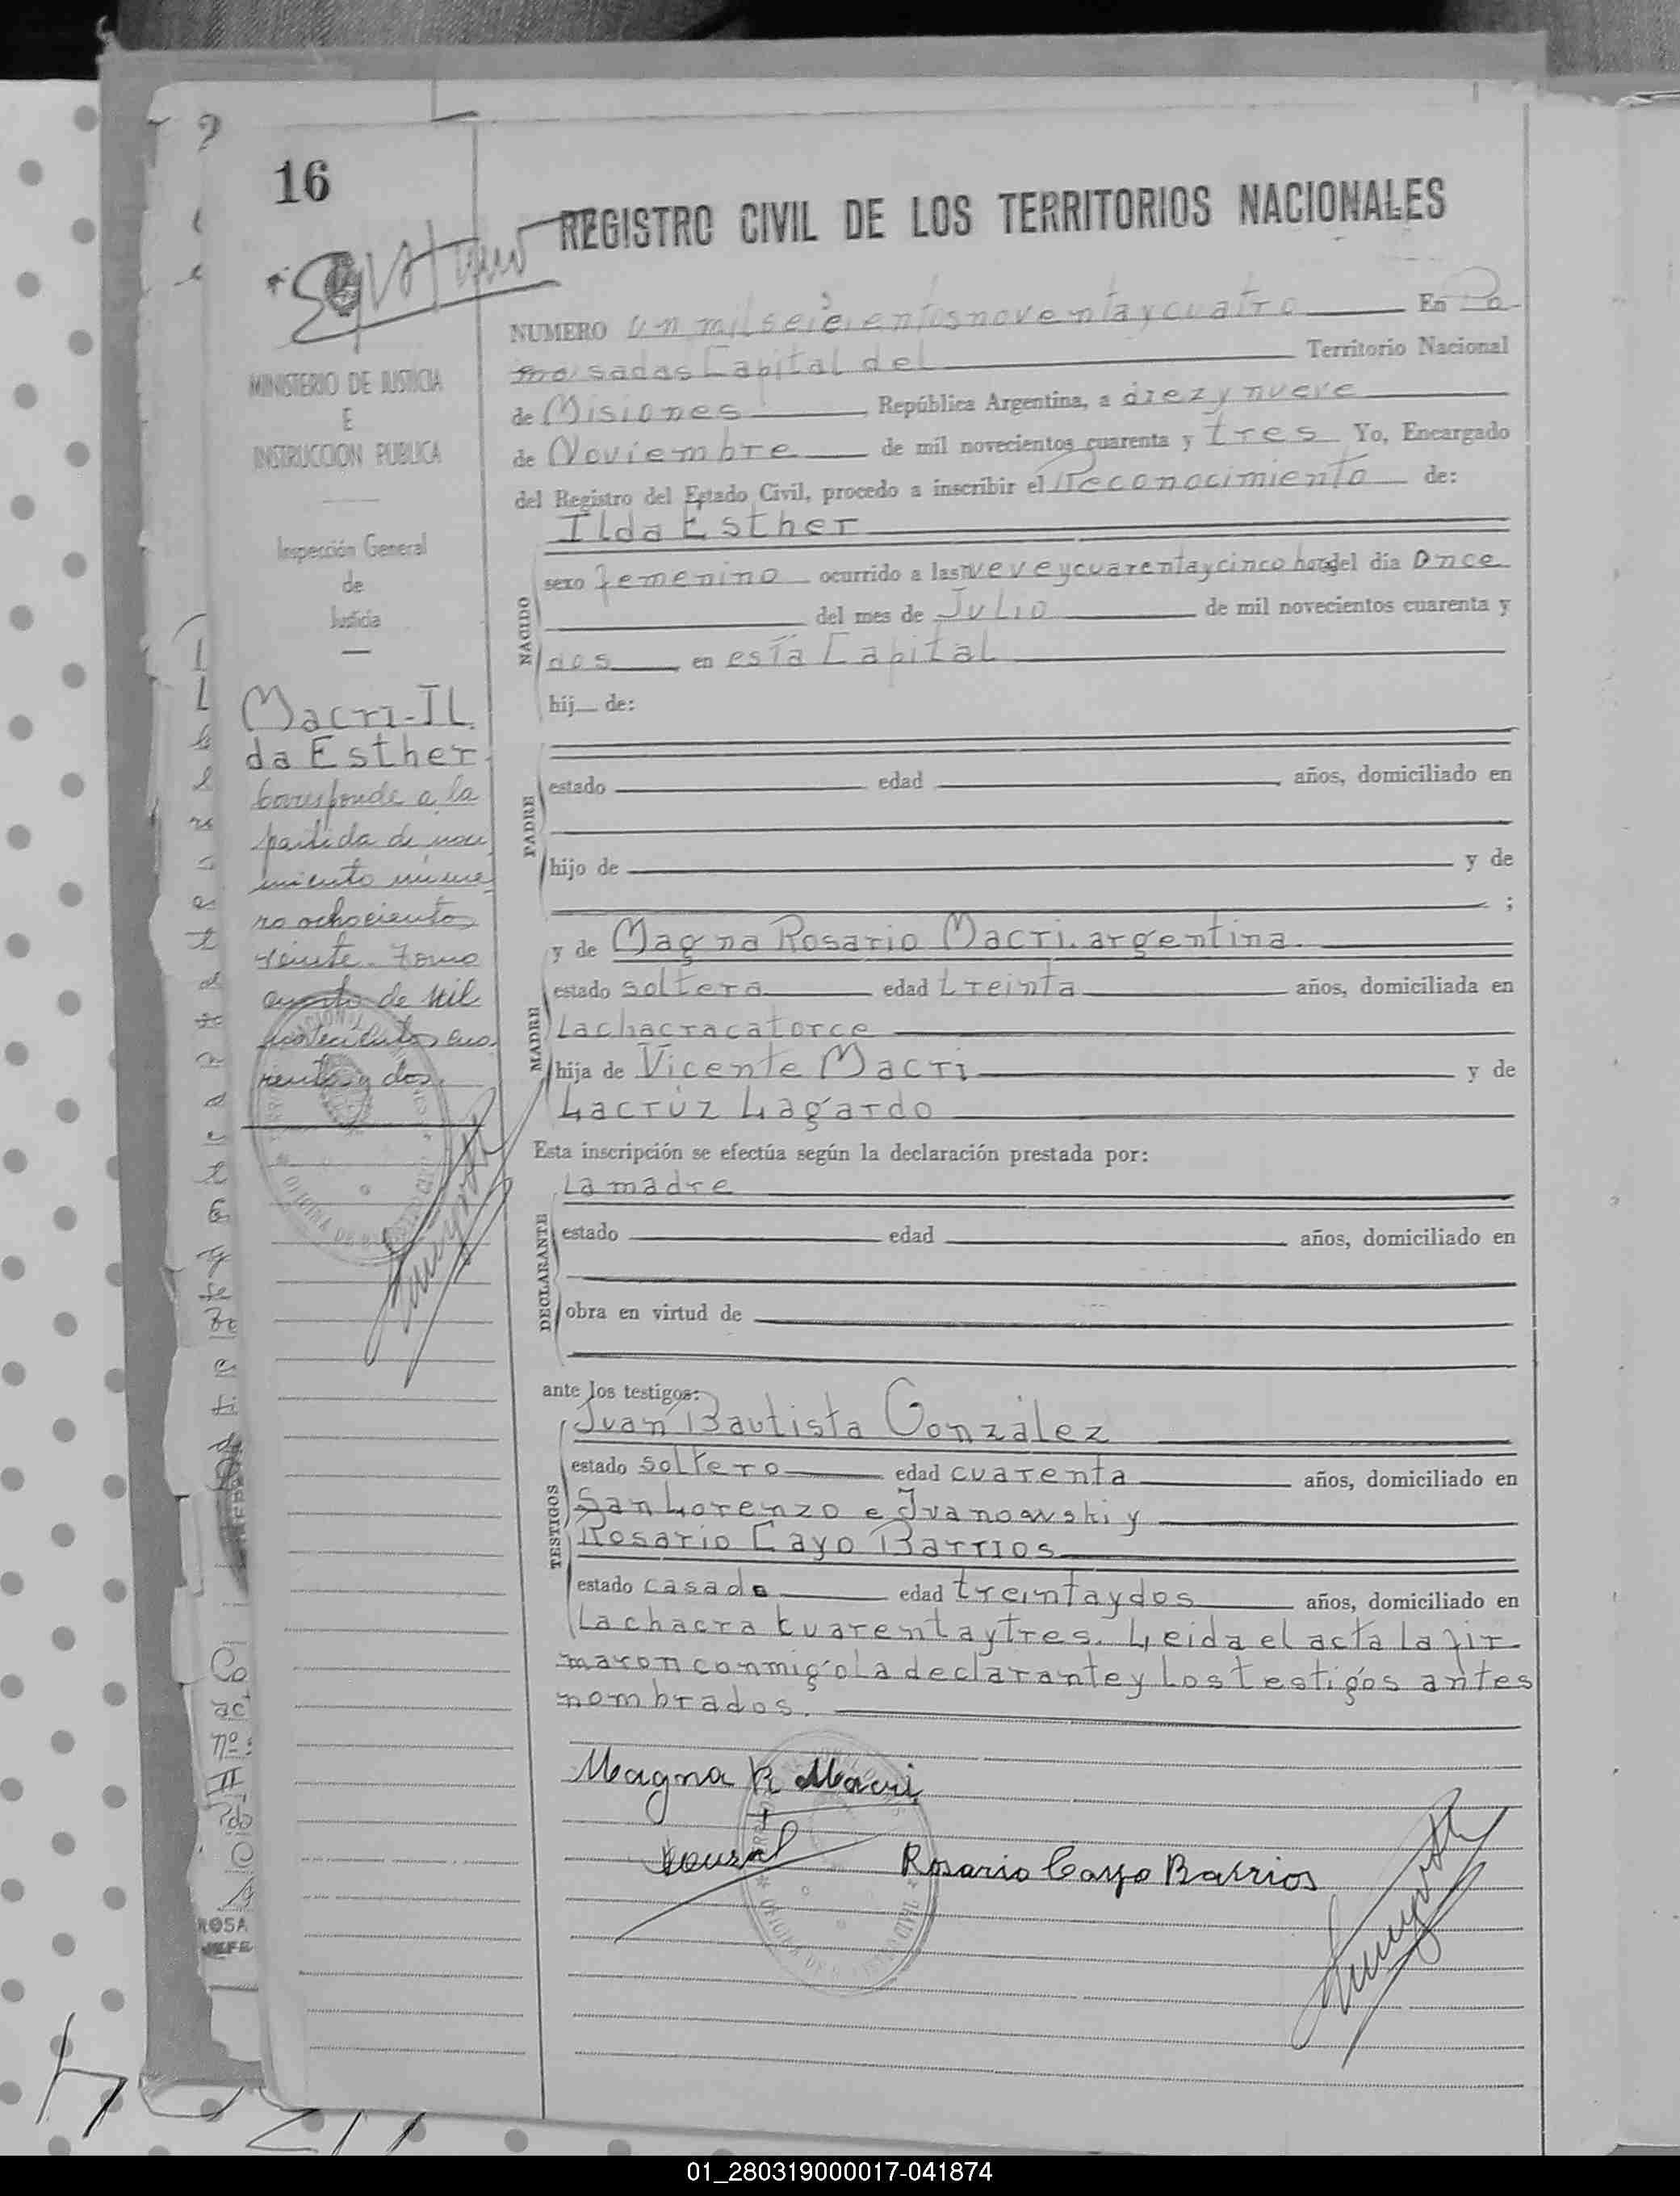 16
REGISTRO CIVIL DE LOS TERRITORIOS NACIONALES
NUMERO un mil seiscientos noventa y cuatro En Po-
sadas Capital del Territorio Nacional
de Misiones República Argentina, a diez y nueve
de Noviembre de mil novecientos cuarenta y tres Yo, Encargado
del Registro del Estado Civil, procedo a inscribir el Reconocimiento de:
Ilda Esther
NACIDO
sexo femenino ocurrido a las nueve y cuarenta y cinco horas del día Once
del mes de Julio de mil novecientos cuarenta y
dos en esta Capital
hij de:
PADRE
estado edad años, domiciliado en
hijo de y de
;
y de Magna Rosario Macri. argentina.
MADRE
estado soltera edad treinta años, domiciliada en
La chacra catorce
hija de Vicente Macri y de
Lacrúz Lagardo
Esta inscripción se efectúa según la declaración prestada por:
La madre
DECLARANTE
estado edad años, domiciliado en
obra en virtud de
ante los testigos:
Juan Bautista González
TESTIGOS
estado soltero edad cuarenta años, domiciliado en
San Lorenzo e Ivanowski y
Rosario Cayo Barrios
estado casado edad treinta y dos años, domiciliado en
La chacra cuarenta y tres. Leida el acta la fir
maron conmigo la declarante y los testigos antes
nombrados.
Magna R Macri
Rosario Cayo Barrios
MINISTERIO DE JUSTICIA
E
INSTRUCCION PUBLICA
Inspección General
de
Justicia
Macri-Il
da Esther
Corresponde a la
partida de naci
miento núme
ro ochocientos
veinte. Tomo
cuarto de mil
novecientos cua
renta y dos.
ROSA
JEFE
01_280319000017-041874